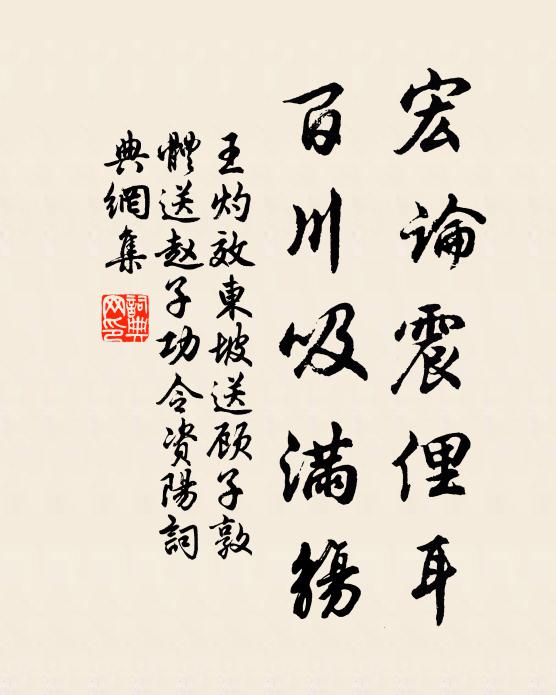 宏論震俚耳
百川吸滿觴
王灼效東坡送顾子敦
體送赵子功令资陽詞
典網集
詞典
网印